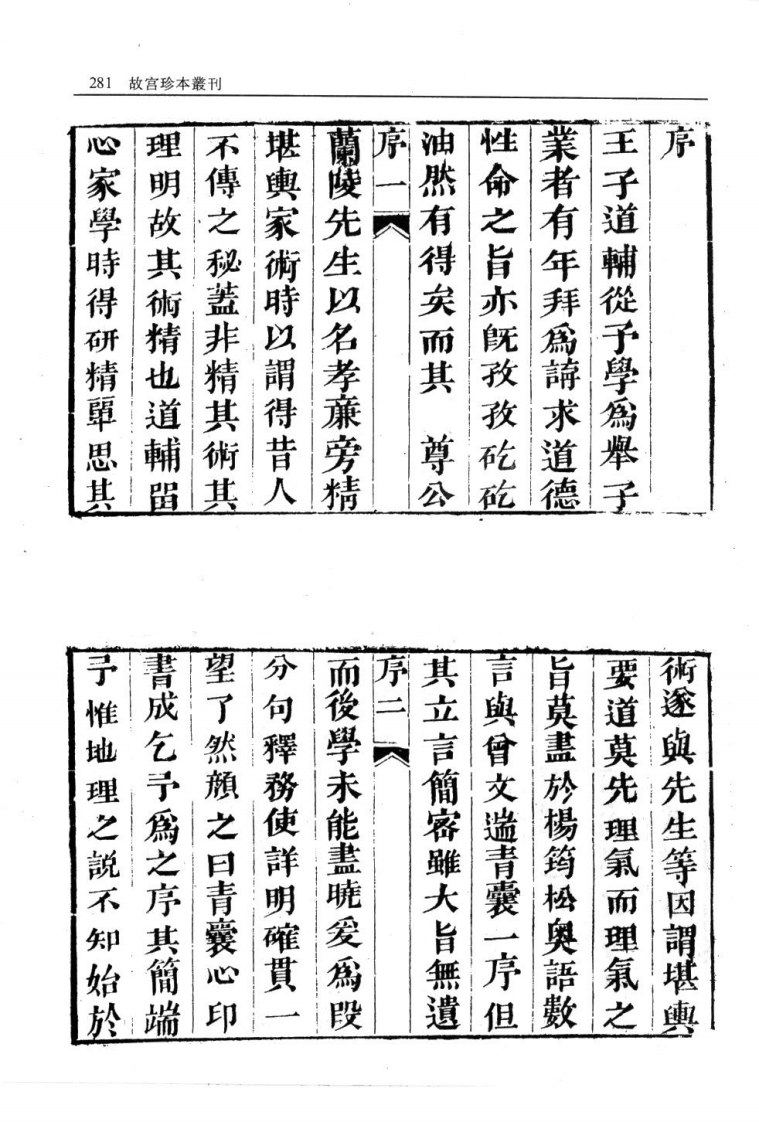 281 故宫珍本叢刊
序
王子道輔從予學爲舉子
業者有年拜爲講求道德
性命之旨亦既孜孜矻矻
油然有得矣而其 尊公
序 一
蘭陵先生以名孝廉旁精
堪輿家術時以謂得昔人
不傳之秘蓋非精其術其
理明故其術精也道輔留
心家學時得研精單思其
術遂與先生等因謂堪輿
要道莫先理氣而理氣之
旨莫盡於楊筠松奧語數
言與曾文遄青囊一序但
其立言簡密雖大旨無遺
序 二
而後學未能盡曉爰爲段
分句釋務使詳明確貫一
望了然顏之曰青囊心印
書成乞予爲之序其簡端
予惟地理之說不知始於